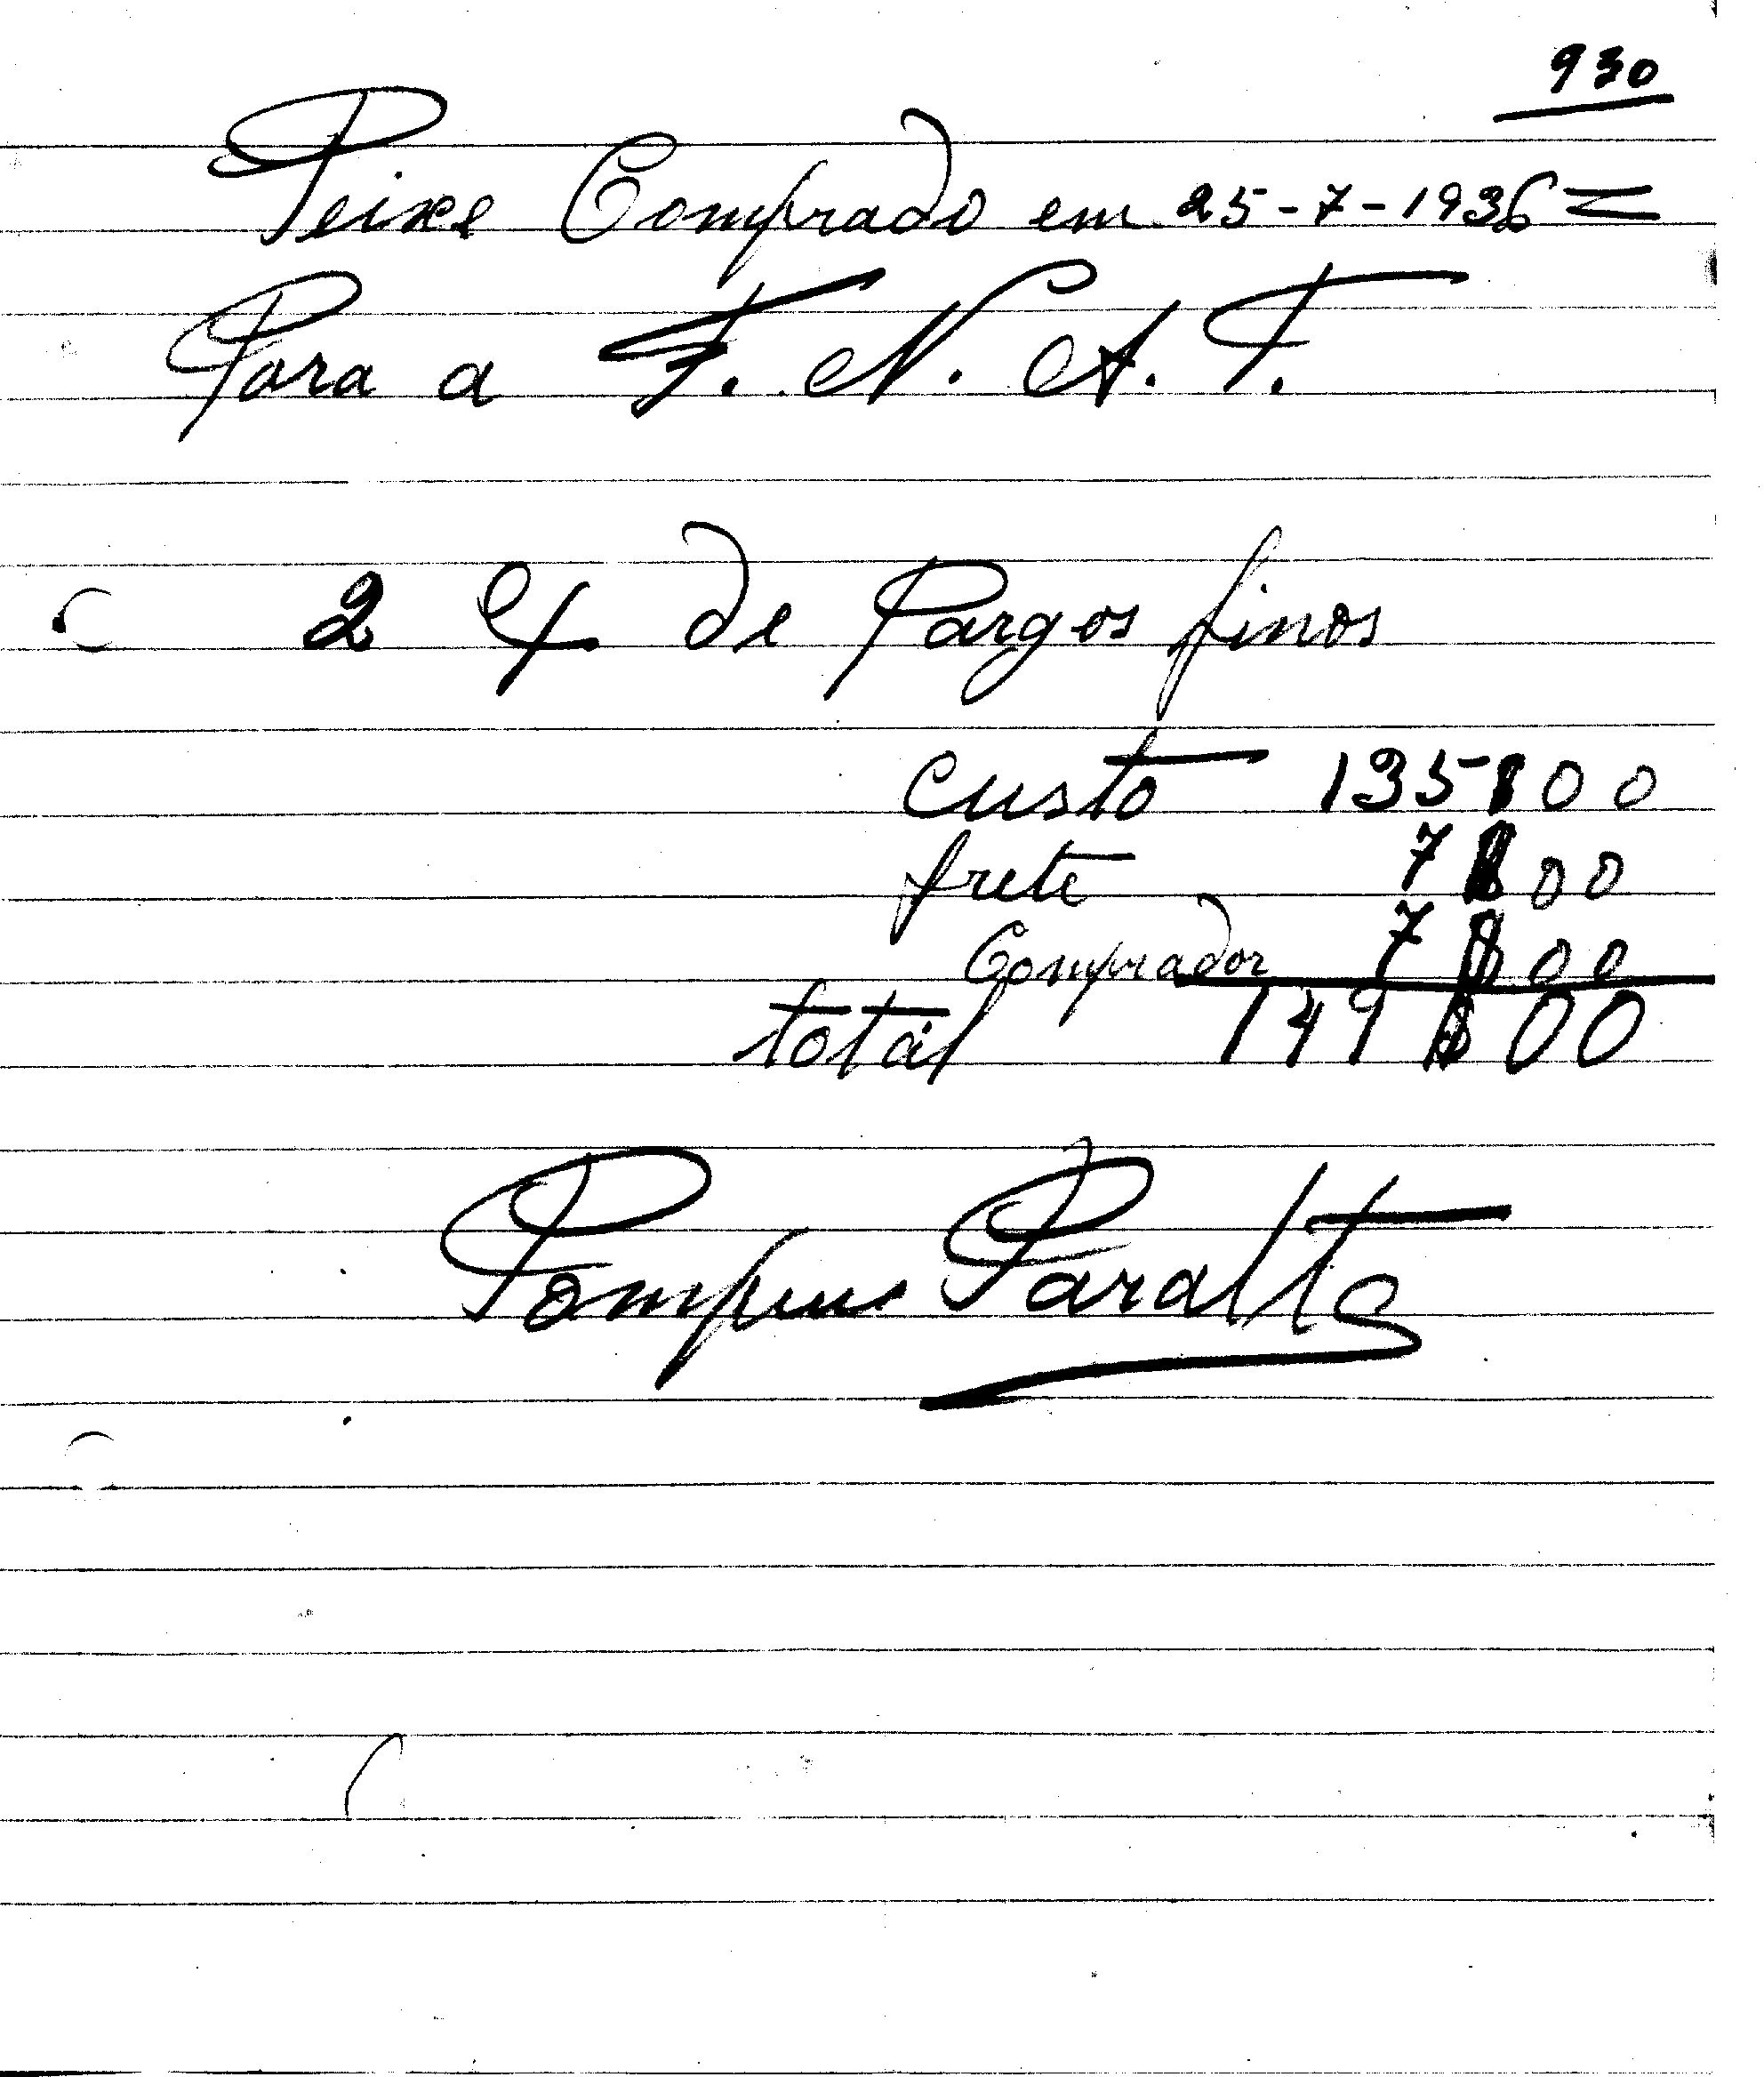 930
Peixe Comprado em 25-7-1936 =
Para a F. N. A. T.
2 Cx de Pargos finos
custo 135$00
frete 7$00
Comprador 7$00
totál 149$00
Paralta